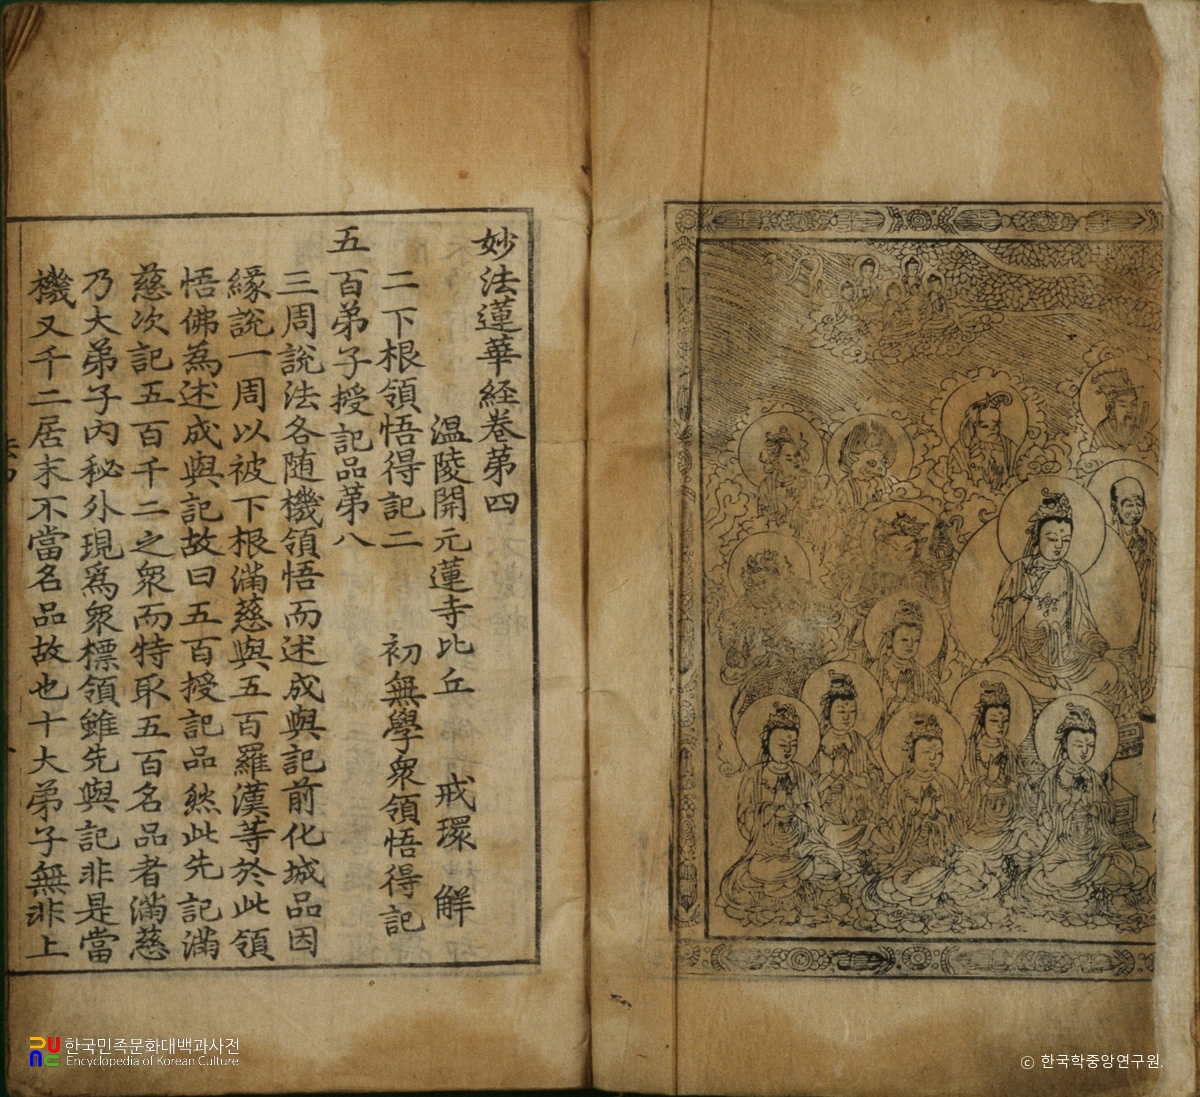 妙法蓮華経卷第四
温陵開元蓮寺比丘 戒環 解
二下根領悟得記二 初無學衆領悟得記
五百弟子授記品第八
三周說法各随機領悟而述成與記前化城品因
緣說一周以被下根滿慈與五百羅漢等於此領
悟佛爲述成與記故曰五百授記品然此先記滿
慈次記五百千二之衆而特取五百名品者滿慈
乃大弟子內秘外現爲衆標領雖先與記非是當
機又千二居末不當名品故也十大弟子無非上
한국민족문화대백과사전
Encyclopedia of Korean Culture
ⓒ 한국학중앙연구원